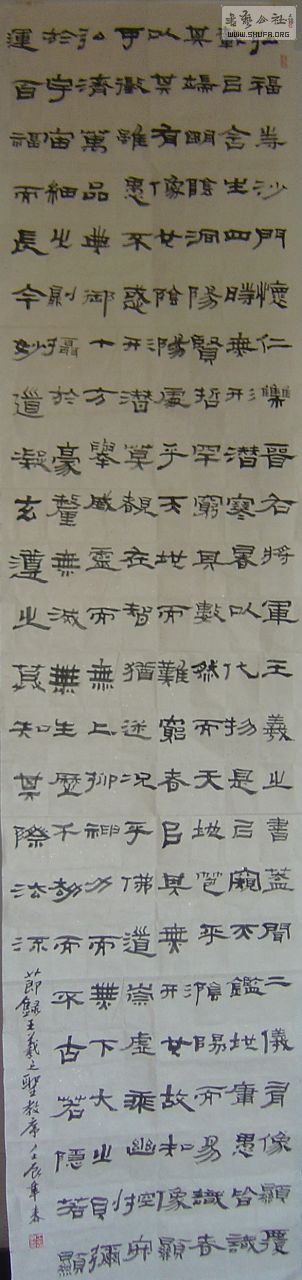 書藝公社
WWW.SHUFA.ORG
弘福寺沙門懷仁集晉右將軍王羲之書蓋聞二儀有像顯覆
載以含生四時無形潛寒暑以化物是以窺天鑑地庸愚皆識
其端明陰洞陽賢哲罕窮其數然而天地苞乎陰陽而易識者
以其有像也陰陽處乎天地而難窮者以其無形也故知像顯
可徵雖愚不惑形潛莫覩在智猶迷況乎佛道崇虛乘幽控寂
弘濟萬品典御十方舉威靈而無上抑神力而無下大之則彌
於宇宙細之則攝於豪釐無滅無生歷千劫而不古若隱若顯
運百福而長今妙道凝玄遵之莫知其際法流
節錄王羲之聖教序壬辰年春